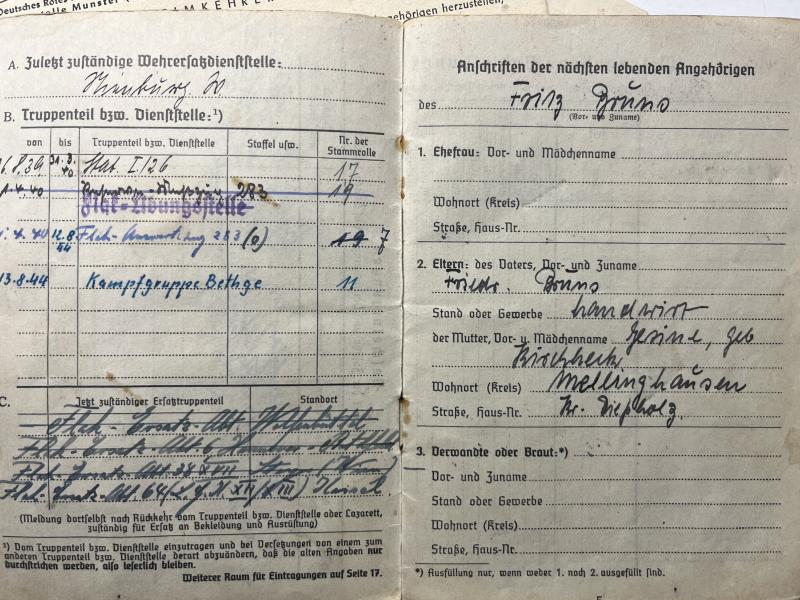 Deutsches Rotes
elle Munster
MKEHRE
gehörigen herzustellen,
A. Zuletzt zuständige Wehrersatzdienststelle:
Nienburg W
B. Truppenteil bzw. Dienststelle:¹)
von bis Truppenteil bzw. Dienststelle Staffel usw. Nr. der Stammrolle
6.8.39 31.3.40 Stab. I./26 17
1.4.40 283 19
Flak-Übungsstelle
4.40 12.8.44 Flak-Auswertung 283 (o) 19 7
13.8.44 Kampfgruppe Bethge 11
C. Jetzt zuständiger Ersatztruppenteil Standort
Flak-Ersatz-Abt. Wolfenbüttel
Flak-Ersatz-Abt. 6,
Flak-Ersatz-Abt. 38 XVII
Flak-Ersatz-Abt. 64 (L.G.K. XII/XIII)
(Meldung dortselbst nach Rückkehr vom Truppenteil bzw. Dienststelle oder Lazarett,
zuständig für Ersatz an Bekleidung und Ausrüstung)
¹) Vom Truppenteil bzw. Dienststelle einzutragen und bei Versetzungen von einem zum
anderen Truppenteil bzw. Dienststelle derart abzuändern, daß die alten Angaben nur
durchstrichen werden, also leserlich bleiben.
Weiterer Raum für Eintragungen auf Seite 17.
Anschriften der nächsten lebenden Angehörigen
des Fritz Bruns
(Vor- und Zuname)
1. Ehefrau: Vor- und Mädchenname
Wohnort (Kreis)
Straße, Haus-Nr.
2. Eltern: des Vaters, Vor- und Zuname
Friedr. Bruns
Stand oder Gewerbe Landwirt
der Mutter, Vor- u. Mädchenname Gesine, geb
Kirchheck
Wohnort (Kreis) Mellinghausen
Straße, Haus-Nr. Kr. Diepholz.
3. Verwandte oder Braut:*)
Vor- und Zuname
Stand oder Gewerbe
Wohnort (Kreis)
Straße, Haus-Nr.
*) Ausfüllung nur, wenn weder 1. noch 2. ausgefüllt sind.